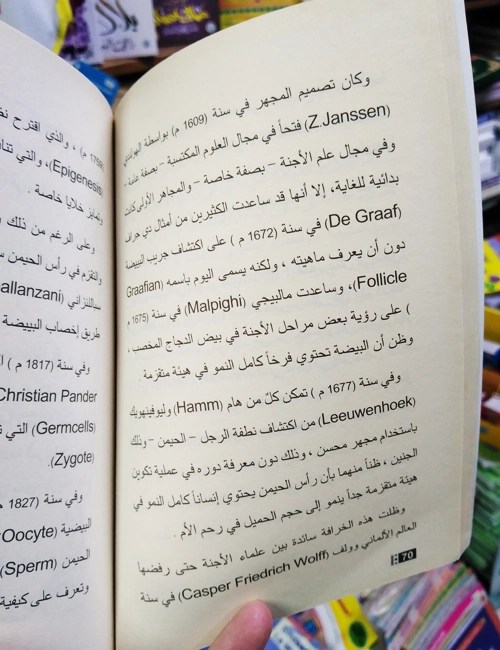 وكان تصميم المجهر في سنة (1609 م) بواسطة الهولندي
(Z.Janssen) فتحاً في مجال العلوم المكتسبة - بصفة عامة -
وفي مجال علم الأجنة - بصفة خاصة - والمجاهر الأولى كانت
بدائية للغاية، إلا أنها قد ساعدت الكثيرين من أمثال دي جراف
(De Graaf) في سنة (1672 م) على اكتشاف جريب البييضة
دون أن يعرف ماهيته ، ولكنه يسمى اليوم باسمه (Graafian
Follicle)، وساعدت مالبيجي (Malpighi) في سنة (1675 م
) على رؤية بعض مراحل الأجنة في بيض الدجاج المخصب ،
وظن أن البيضة تحتوي فرخاً كامل النمو في هيئة متقزمة .
وفي سنة (1677 م ) تمكن كلّ من هام (Hamm) وليوفينهويك
(Leeuwenhoek) من اكتشاف نطفة الرجل - الحيمن - وذلك
باستخدام مجهر محسن ، وذلك دون معرفة دوره في عملية تكوين
الجنين ، ظناً منهما بأن رأس الحيمن يحتوي إنساناً كامل النمو في
هيئة متقزمة جداً ينمو إلى حجم الحميل في رحم الأم .
وظلت هذه الخرافة سائدة بين علماء الأجنة حتى رفضها
العالم الألماني وولف (Casper Friedrich Wolff) في سنة
70
1759 م) ، والذي اقترح
(Epigenesis)، والتي
وتمايز خلايا خاصة .
وعلى الرغم من ذلك
والتقزم في رأس الحيمن
سباللنزاني (allanzani
طريق إخصاب البييضة
وفي سنة (1817 م)
Christian Pander
(Germcells) التي
(Zygote).
وفي سنة (1827
البييضية (Oocyte
الحيمن (Sperm)
وتعرف على كيفية